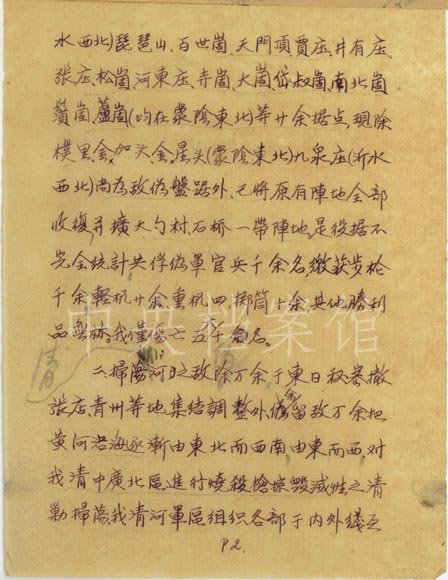 水西北)琵琶山、百世崮、天門頂賈庄、井有庄、
張庄、松崮、河東庄、弄崮、大崮、岱叔崮、南北崮
鬢崮、蘆崮(均在蒙陰東北)等廿余据点、現除
樸里、金加头、金星头(蒙陰東北)九泉庄(沂水
西北)尚為敌偽盤踞外、已將原有陣地全部
收復并擴大勺村、石桥一帶陣地、是役据不
完全統計共俘偽軍官兵千余名繳获步枪
千余軽机廿余、重机四、掷筒十余、其他勝利
品無标。我僅傷亡五十余名。
二、掃蕩河口之敌除万余于東日秘密撤
張店、青州等地集結調整外余偽留敌万余把
黄河沿海逐漸由東北而西南由東而西、对
我清中廣北區、進行燒殺搶掠毀滅性之清
剿掃蕩、我清河軍區組织各部于内外綫互
P2.
中央档案馆